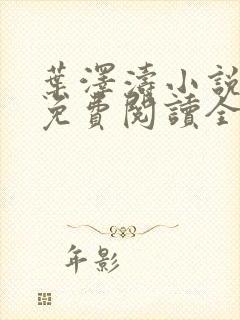 葉澤濤小說
免費閱讀全
年影